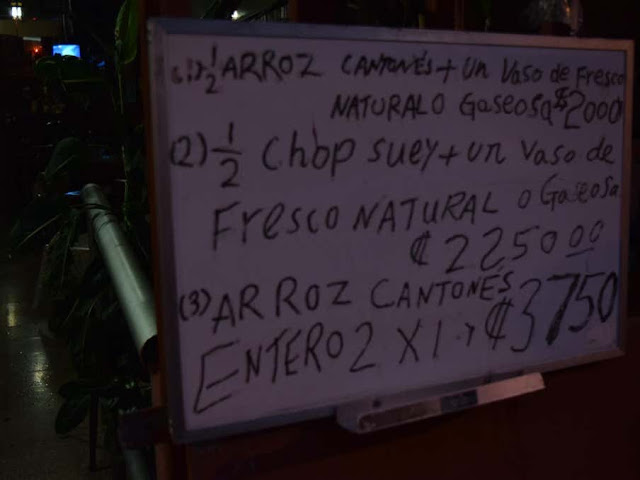 (1) 1/2 ARROZ CANTONÉS + Un Vaso de Fresco
NATURAL O Gaseosa ₡2000
(2) 1/2 Chop suey + un vaso de
Fresco NATURAL o Gaseosa
₡2250.00
(3) ARROZ CANTONÉS
ENTERO 2 X 1 → ₡3750